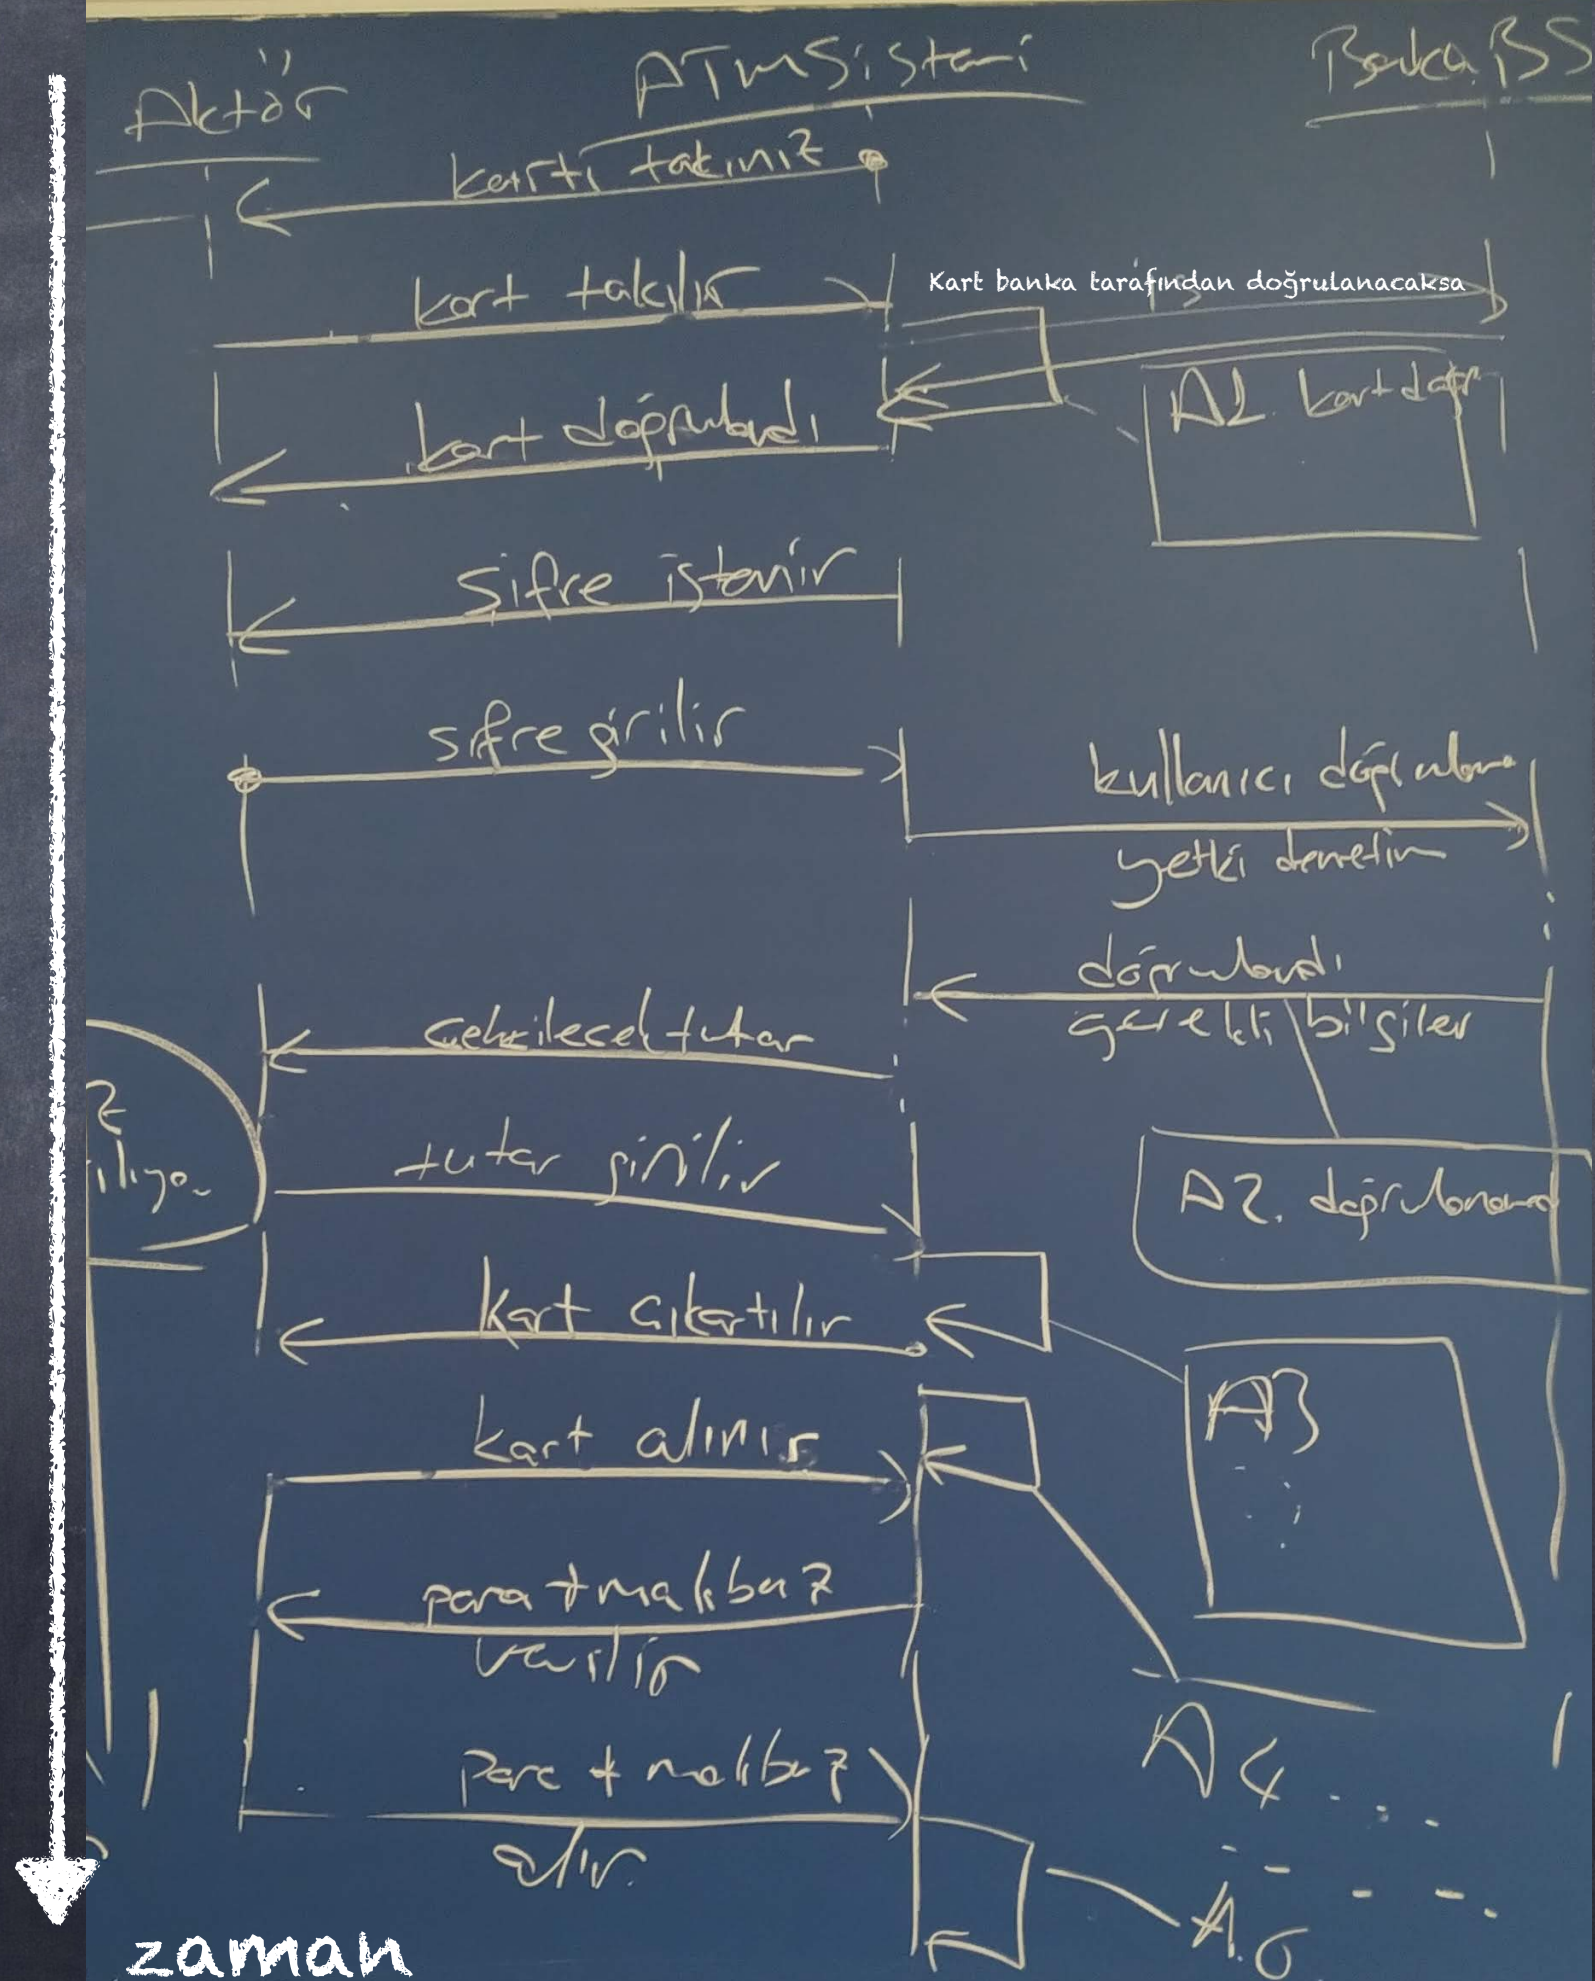 Aktör
ATM Sistemi
Banka BS
kartı takınız
kart takılır
Kart banka tarafından doğrulanacaksa
kart doğrulandı
A1. kart doğr
şifre istenir
şifre girilir
kullanıcı doğrulama
yetki denetim
doğrulandı
gerekli bilgiler
çekilecek tutar
tutar girilir
A2. doğrulanama
kart çıkartılır
A3
kart alınır
para + makbuz
verilir
A4
para + makbuz
alır.
A.6
zaman